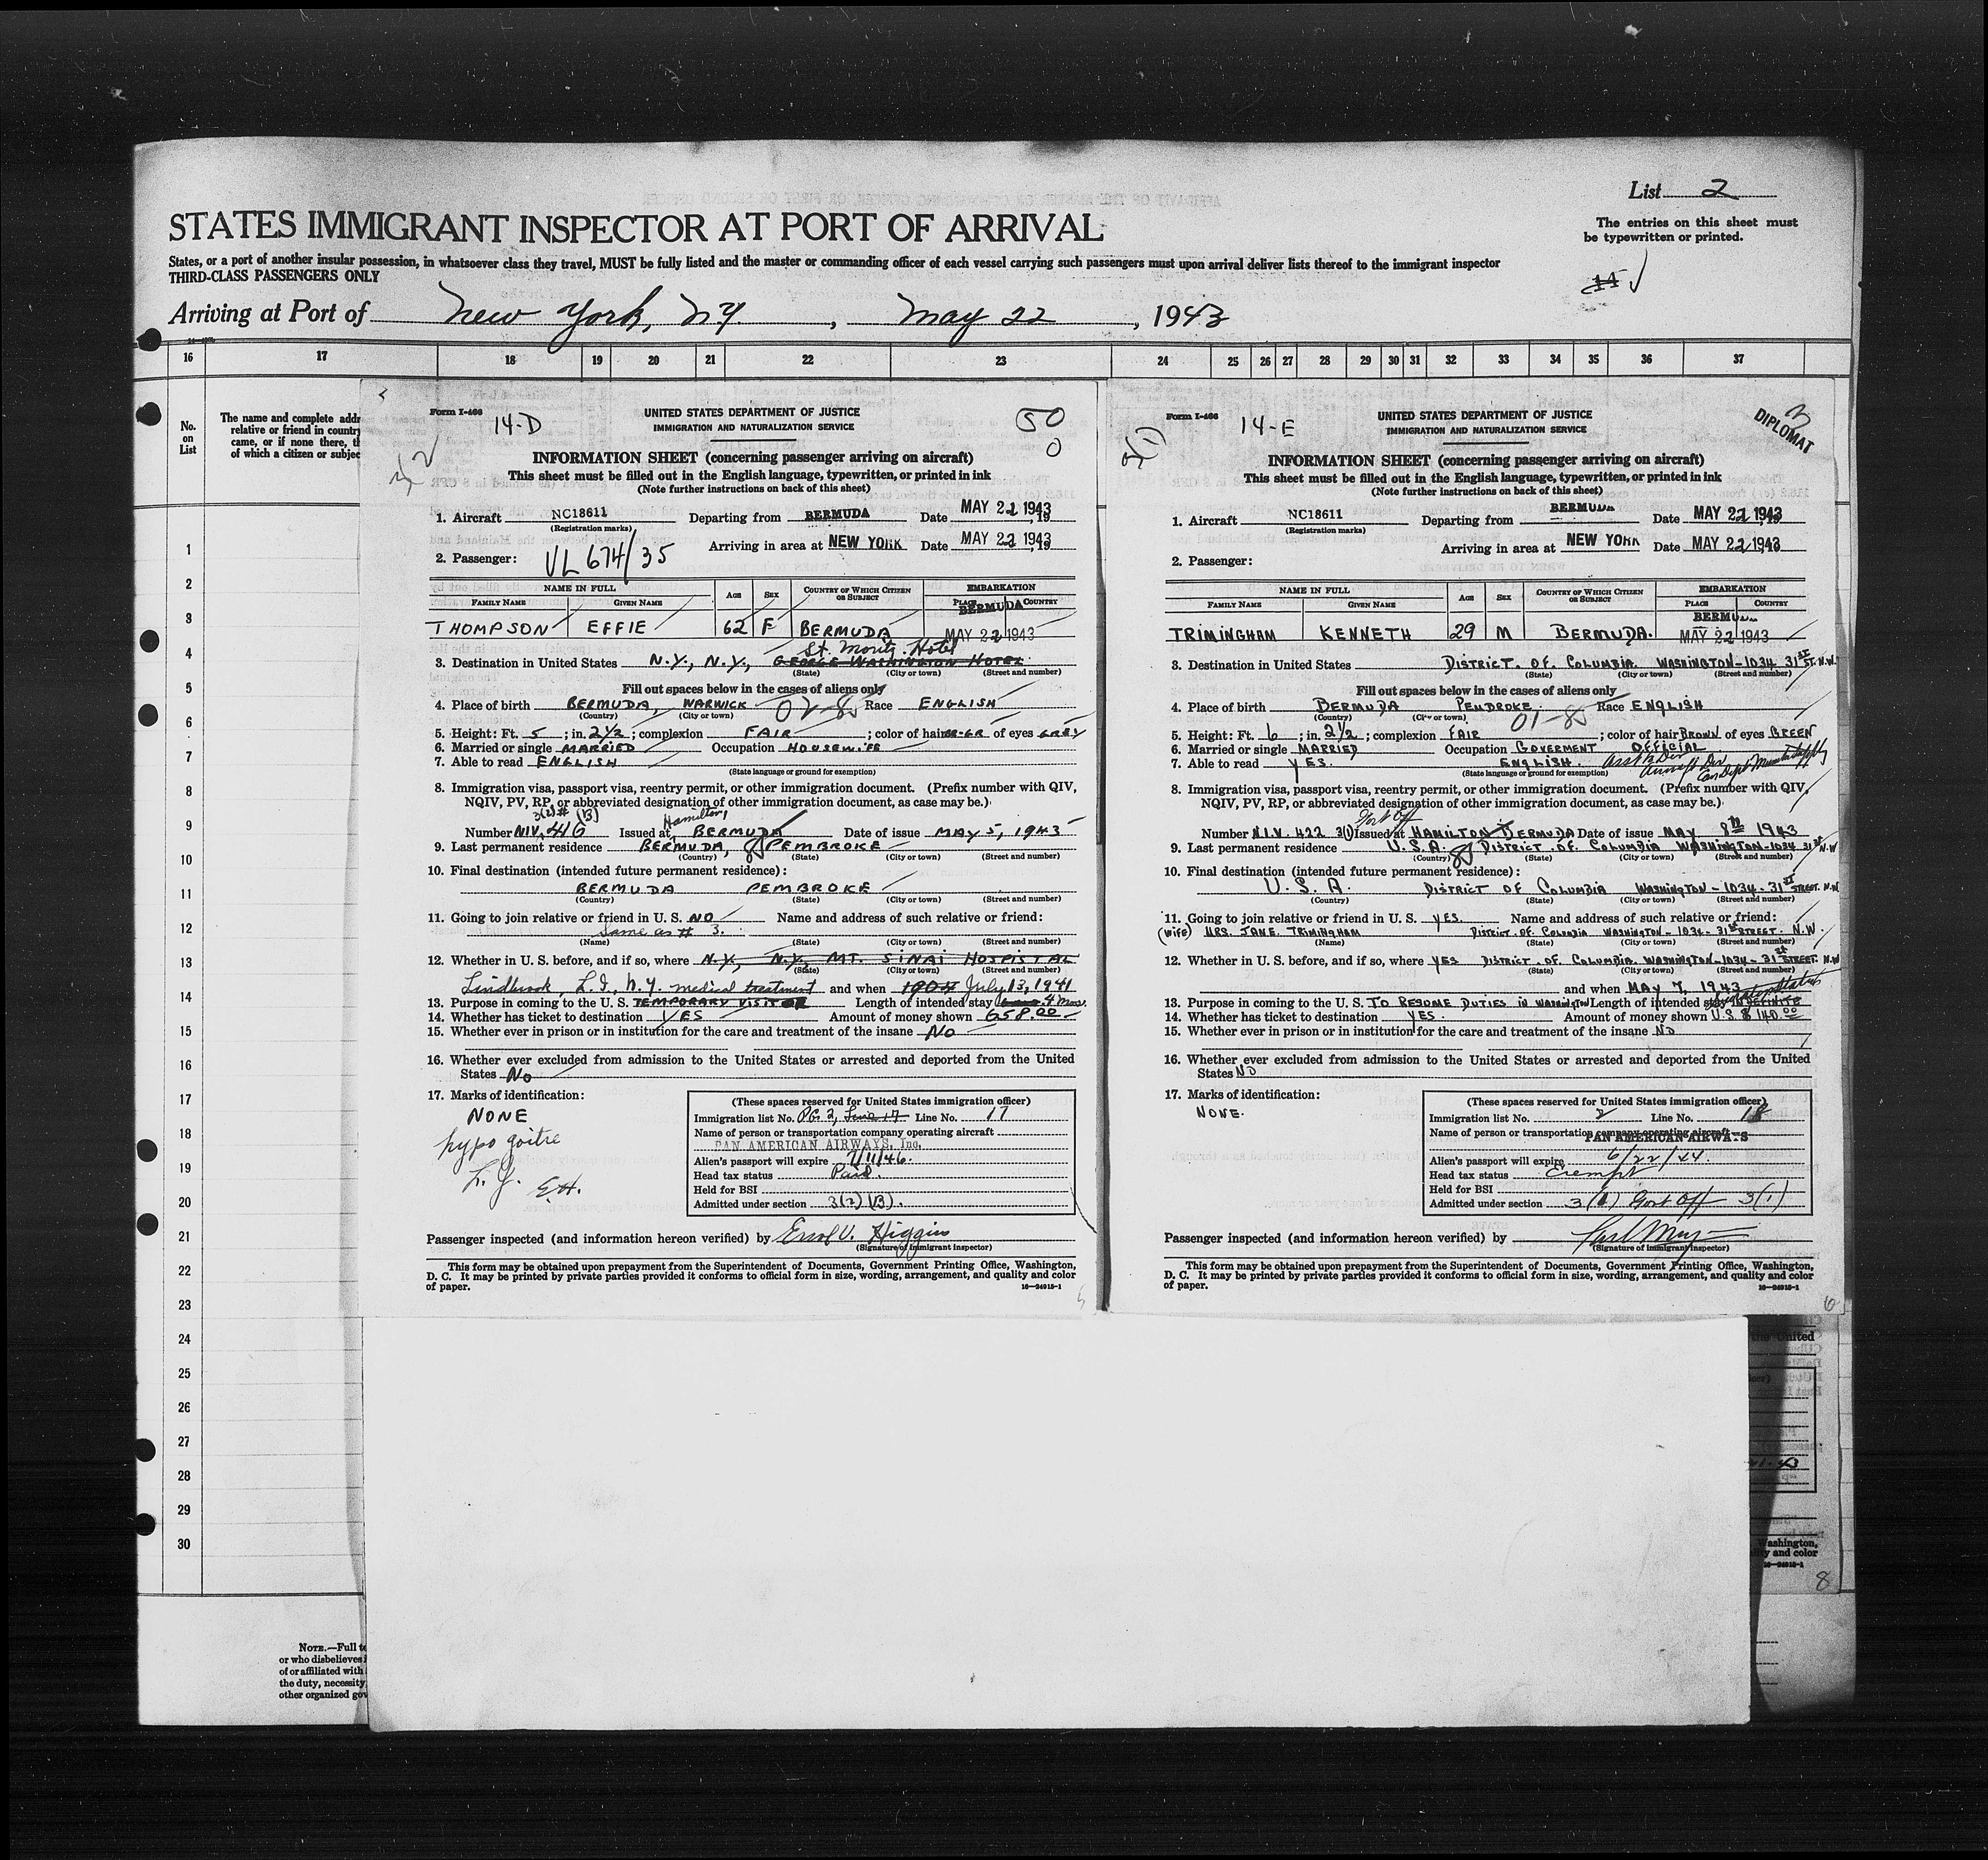 List 2
STATES IMMIGRANT INSPECTOR AT PORT OF ARRIVAL
The entries on this sheet must
be typewritten or printed.
States, or a port of another insular possession, in whatsoever class they travel, MUST be fully listed and the master or commanding officer of each vessel carrying such passengers must upon arrival deliver lists thereof to the immigrant inspector
THIRD-CLASS PASSENGERS ONLY
Arriving at Port of New York, N.Y. , May 22 , 1943
16 17 18 19 20 21 22 23 24 25 26 27 28 29 30 31 32 33 34 35 36 37
No.
on
List
The name and complete addr
relative or friend in country
came, or if none there, th
of which a citizen or subjec
1
2
3
4
5
6
7
8
9
10
11
12
13
14
15
16
17
18
19
20
21
22
23
24
25
26
27
28
29
30
NOTE.—Full te
or who disbelieves i
of or affiliated with
the duty, necessity,
other organized gov
Form I-466
14-D
50
0
UNITED STATES DEPARTMENT OF JUSTICE
IMMIGRATION AND NATURALIZATION SERVICE
INFORMATION SHEET (concerning passenger arriving on aircraft)
This sheet must be filled out in the English language, typewritten, or printed in ink
(Note further instructions on back of this sheet)
1. Aircraft NC18611 Departing from BERMUDA Date MAY 22 1943, 19
(Registration marks)
Arriving in area at NEW YORK Date MAY 22 1943, 19
2. Passenger: VL 674/35
NAME IN FULL AGE SEX COUNTRY OF WHICH CITIZEN OR SUBJECT EMBARKATION
FAMILY NAME GIVEN NAME PLACE COUNTRY
BERMUDA
THOMPSON EFFIE 62 F BERMUDA MAY 22 1943
St. Moritz Hotel
3. Destination in United States N.Y., N.Y., GEORGE WASHINGTON HOTEL
(State) (City or town) (Street and number)
Fill out spaces below in the cases of aliens only
4. Place of birth BERMUDA, WARWICK 02-85 Race ENGLISH
(Country) (City or town)
5. Height: Ft. 5 ; in. 2 1/2 ; complexion FAIR ; color of hair BR-GR of eyes GREY
6. Married or single MARRIED Occupation HOUSEWIFE
7. Able to read ENGLISH
(State language or ground for exemption)
8. Immigration visa, passport visa, reentry permit, or other immigration document. (Prefix number with QIV,
NQIV, PV, RP, or abbreviated designation of other immigration document, as case may be.)
3(2) (B) Hamilton,
Number NIV, 416 Issued at BERMUDA Date of issue MAY 5, 1943
9. Last permanent residence BERMUDA, PEMBROKE
(Country) (State) (City or town) (Street and number)
10. Final destination (intended future permanent residence):
BERMUDA PEMBROKE
(Country) (State) (City or town) (Street and number)
11. Going to join relative or friend in U. S. NO Name and address of such relative or friend:
Same as # 3.
(Name) (State) (City or town) (Street and number)
12. Whether in U. S. before, and if so, where N.Y., N.Y., MT. SINAI HOSPITAL
(State) (City or town) (Street and number)
Lindbrook, L.I., N.Y. medical treatment and when 1904 July 13, 1941
13. Purpose in coming to the U. S. TEMPORARY VISITOR Length of intended stay 4 Mos.
14. Whether has ticket to destination YES Amount of money shown 658.00
15. Whether ever in prison or in institution for the care and treatment of the insane NO
16. Whether ever excluded from admission to the United States or arrested and deported from the United
States NO
17. Marks of identification:
NONE
hypo goitre
L.G. E.H.
(These spaces reserved for United States immigration officer)
Immigration list No. PG. 2, Line 17 Line No. 17
Name of person or transportation company operating aircraft
PAN AMERICAN AIRWAYS, Inc.
Alien's passport will expire 7/11/46.
Head tax status Paid.
Held for BSI
Admitted under section 3(2)(B).
Passenger inspected (and information hereon verified) by Errol V. Higgins
(Signature of immigrant inspector)
This form may be obtained upon prepayment from the Superintendent of Documents, Government Printing Office, Washington,
D. C. It may be printed by private parties provided it conforms to official form in size, wording, arrangement, and quality and color
of paper. 16—24915-1
Form I-466
14-E
3(1)
3
DIPLOMAT
UNITED STATES DEPARTMENT OF JUSTICE
IMMIGRATION AND NATURALIZATION SERVICE
INFORMATION SHEET (concerning passenger arriving on aircraft)
This sheet must be filled out in the English language, typewritten, or printed in ink
(Note further instructions on back of this sheet)
1. Aircraft NC18611 Departing from BERMUDA Date MAY 22 1943
(Registration marks)
Arriving in area at NEW YORK Date MAY 22 1943
2. Passenger:
NAME IN FULL AGE SEX COUNTRY OF WHICH CITIZEN OR SUBJECT EMBARKATION
FAMILY NAME GIVEN NAME PLACE COUNTRY
BERMUDA
TRIMINGHAM KENNETH 29 M BERMUDA. MAY 22 1943
3. Destination in United States DISTRICT. OF. COLUMBIA WASHINGTON-1034 31ST ST. N.W.
(State) (City or town) (Street and number)
Fill out spaces below in the cases of aliens only
4. Place of birth BERMUDA PEMBROKE. 01-85 Race ENGLISH
(Country) (City or town)
5. Height: Ft. 6 ; in. 2 1/2 ; complexion FAIR ; color of hair BROWN of eyes GREEN
6. Married or single MARRIED Occupation GOVERMENT OFFICIAL
7. Able to read YES. ENGLISH.
(State language or ground for exemption)
8. Immigration visa, passport visa, reentry permit, or other immigration document. (Prefix number with QIV,
NQIV, PV, RP, or abbreviated designation of other immigration document, as case may be.)
Govt Off
Number N.I.V. 422 3(1) Issued at HAMILTON BERMUDA Date of issue MAY 8TH 1943
9. Last permanent residence U.S.A. DISTRICT. OF. COLUMBIA WASHINGTON-1034 31ST N.W
(Country) (State) (City or town) (Street and number)
10. Final destination (intended future permanent residence):
U.S.A. DISTRICT OF COLUMBIA WASHINGTON-1034-31ST STREET. N.W
(Country) (State) (City or town) (Street and number)
11. Going to join relative or friend in U. S. YES. Name and address of such relative or friend:
(WIFE) MRS. JANE TRIMINGHAM DISTRICT. OF. COLUMBIA WASHINGTON-1034-31ST STREET. N.W.
(Name) (State) (City or town) (Street and number)
12. Whether in U. S. before, and if so, where YES DISTRICT. OF COLUMBIA. WASHINGTON-1034-31ST STREET. N.W
(State) (City or town) (Street and number)
and when MAY 7, 1943
13. Purpose in coming to the U. S. TO RESUME DUTIES IN WASHINGTON Length of intended stay INDEFINITE
14. Whether has ticket to destination YES. Amount of money shown U.S. $ 140.00
15. Whether ever in prison or in institution for the care and treatment of the insane NO
16. Whether ever excluded from admission to the United States or arrested and deported from the United
States NO
17. Marks of identification:
NONE.
(These spaces reserved for United States immigration officer)
Immigration list No. 2 Line No. 18
Name of person or transportation company operating aircraft
PAN AMERICAN AIRWAYS
Alien's passport will expire 6/22/44.
Head tax status Exempt
Held for BSI
Admitted under section 3(1) Govt Off 3(1)
Passenger inspected (and information hereon verified) by
(Signature of immigrant inspector)
This form may be obtained upon prepayment from the Superintendent of Documents, Government Printing Office, Washington,
D. C. It may be printed by private parties provided it conforms to official form in size, wording, arrangement, and quality and color
of paper. 16—24915-1
6
the United
Washington,
ity and color
16—24915-1
8